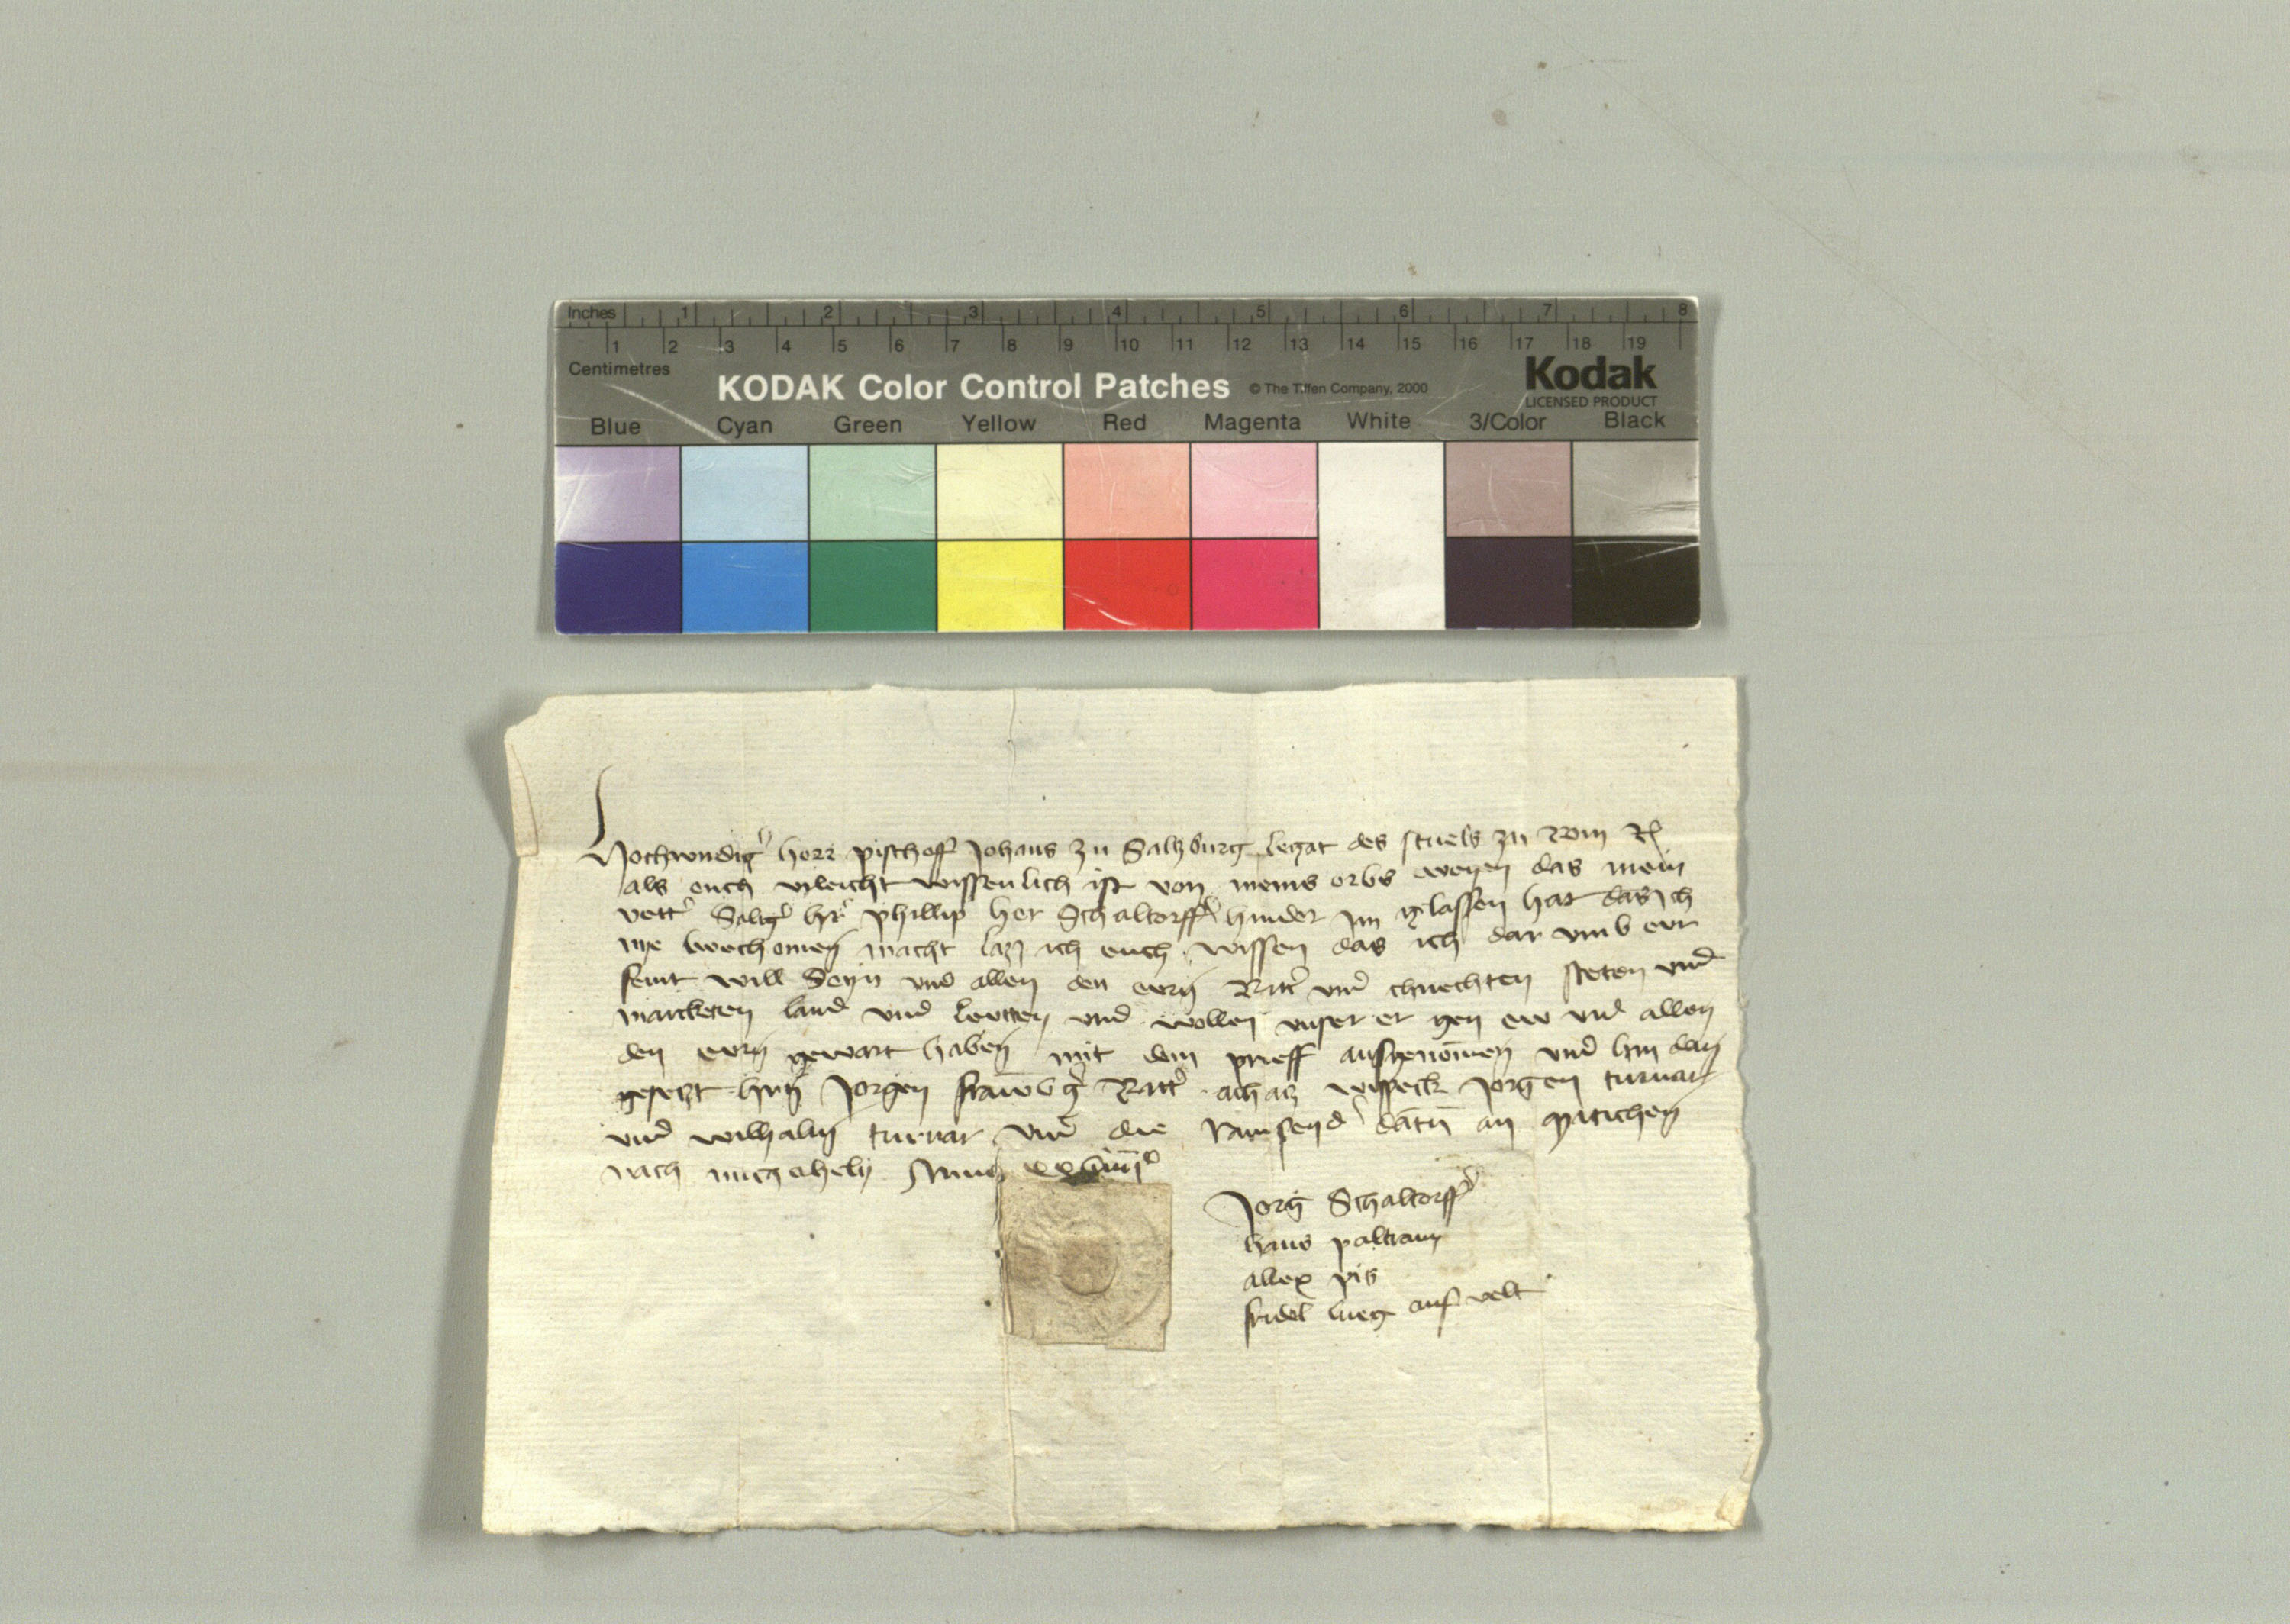 Inches 1 2 3 4 5 6 7 8
1 2 3 4 5 6 7 8 9 10 11 12 13 14 15 16 17 18 19
Centimetres
KODAK Color Control Patches © The Tiffen Company, 2000 Kodak
LICENSED PRODUCT
Blue Cyan Green Yellow Red Magenta White 3/Color Black
Hochwirdig herr pischoff Johans zu Salzburg legat des stuels zu Rom
als euch vileicht wissenlich ist von meins erbs wegen das mein
vett Salig her phillip her Schaltorffer hinder im gelassen hat das ich
nye bechomen macht laz ich euch wissen das ich dar vmb ewr
feint will Seyn vnd allen den ewrn Ritt vnd chnechten steten vnd
marckten land vnd lewtten vnd wollen vnser er gen ew vnd allen
den ewrn gewart haben mit dem prieff ausgenomen vnd hin dan
gesetzt hern Jorgen Ritt achaz wispeck Jorgen turnar
vnd wilhalm turnar vnd die datu an mitichen
nach michahely Anno xxviiii
Jorg Schaltorffer
hans paltram
allex pis
fridel lueg aufs velt